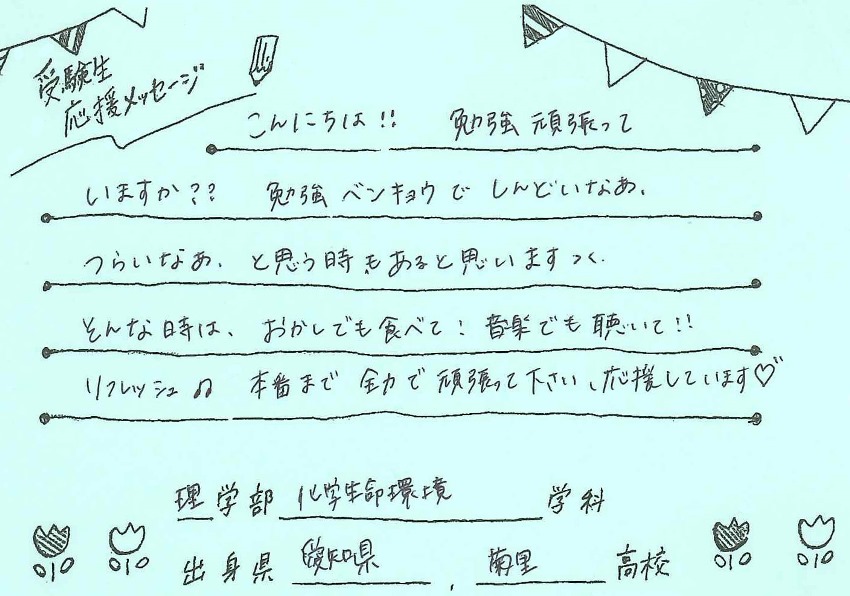 受験生
応援メッセージ
こんにちは!! 勉強 頑張って
いますか?? 勉強 ベンキョウで しんどいなあ、
つらいなあ、と思う時もあると思います
そんな時は、おかしでも食べて! 音楽でも聴いて!!
リフレッシュ♫ 本番まで 全力で 頑張って下さい、応援しています♡
理学部 化学生命環境 学科
出身県 愛知県 , 菊里 高校